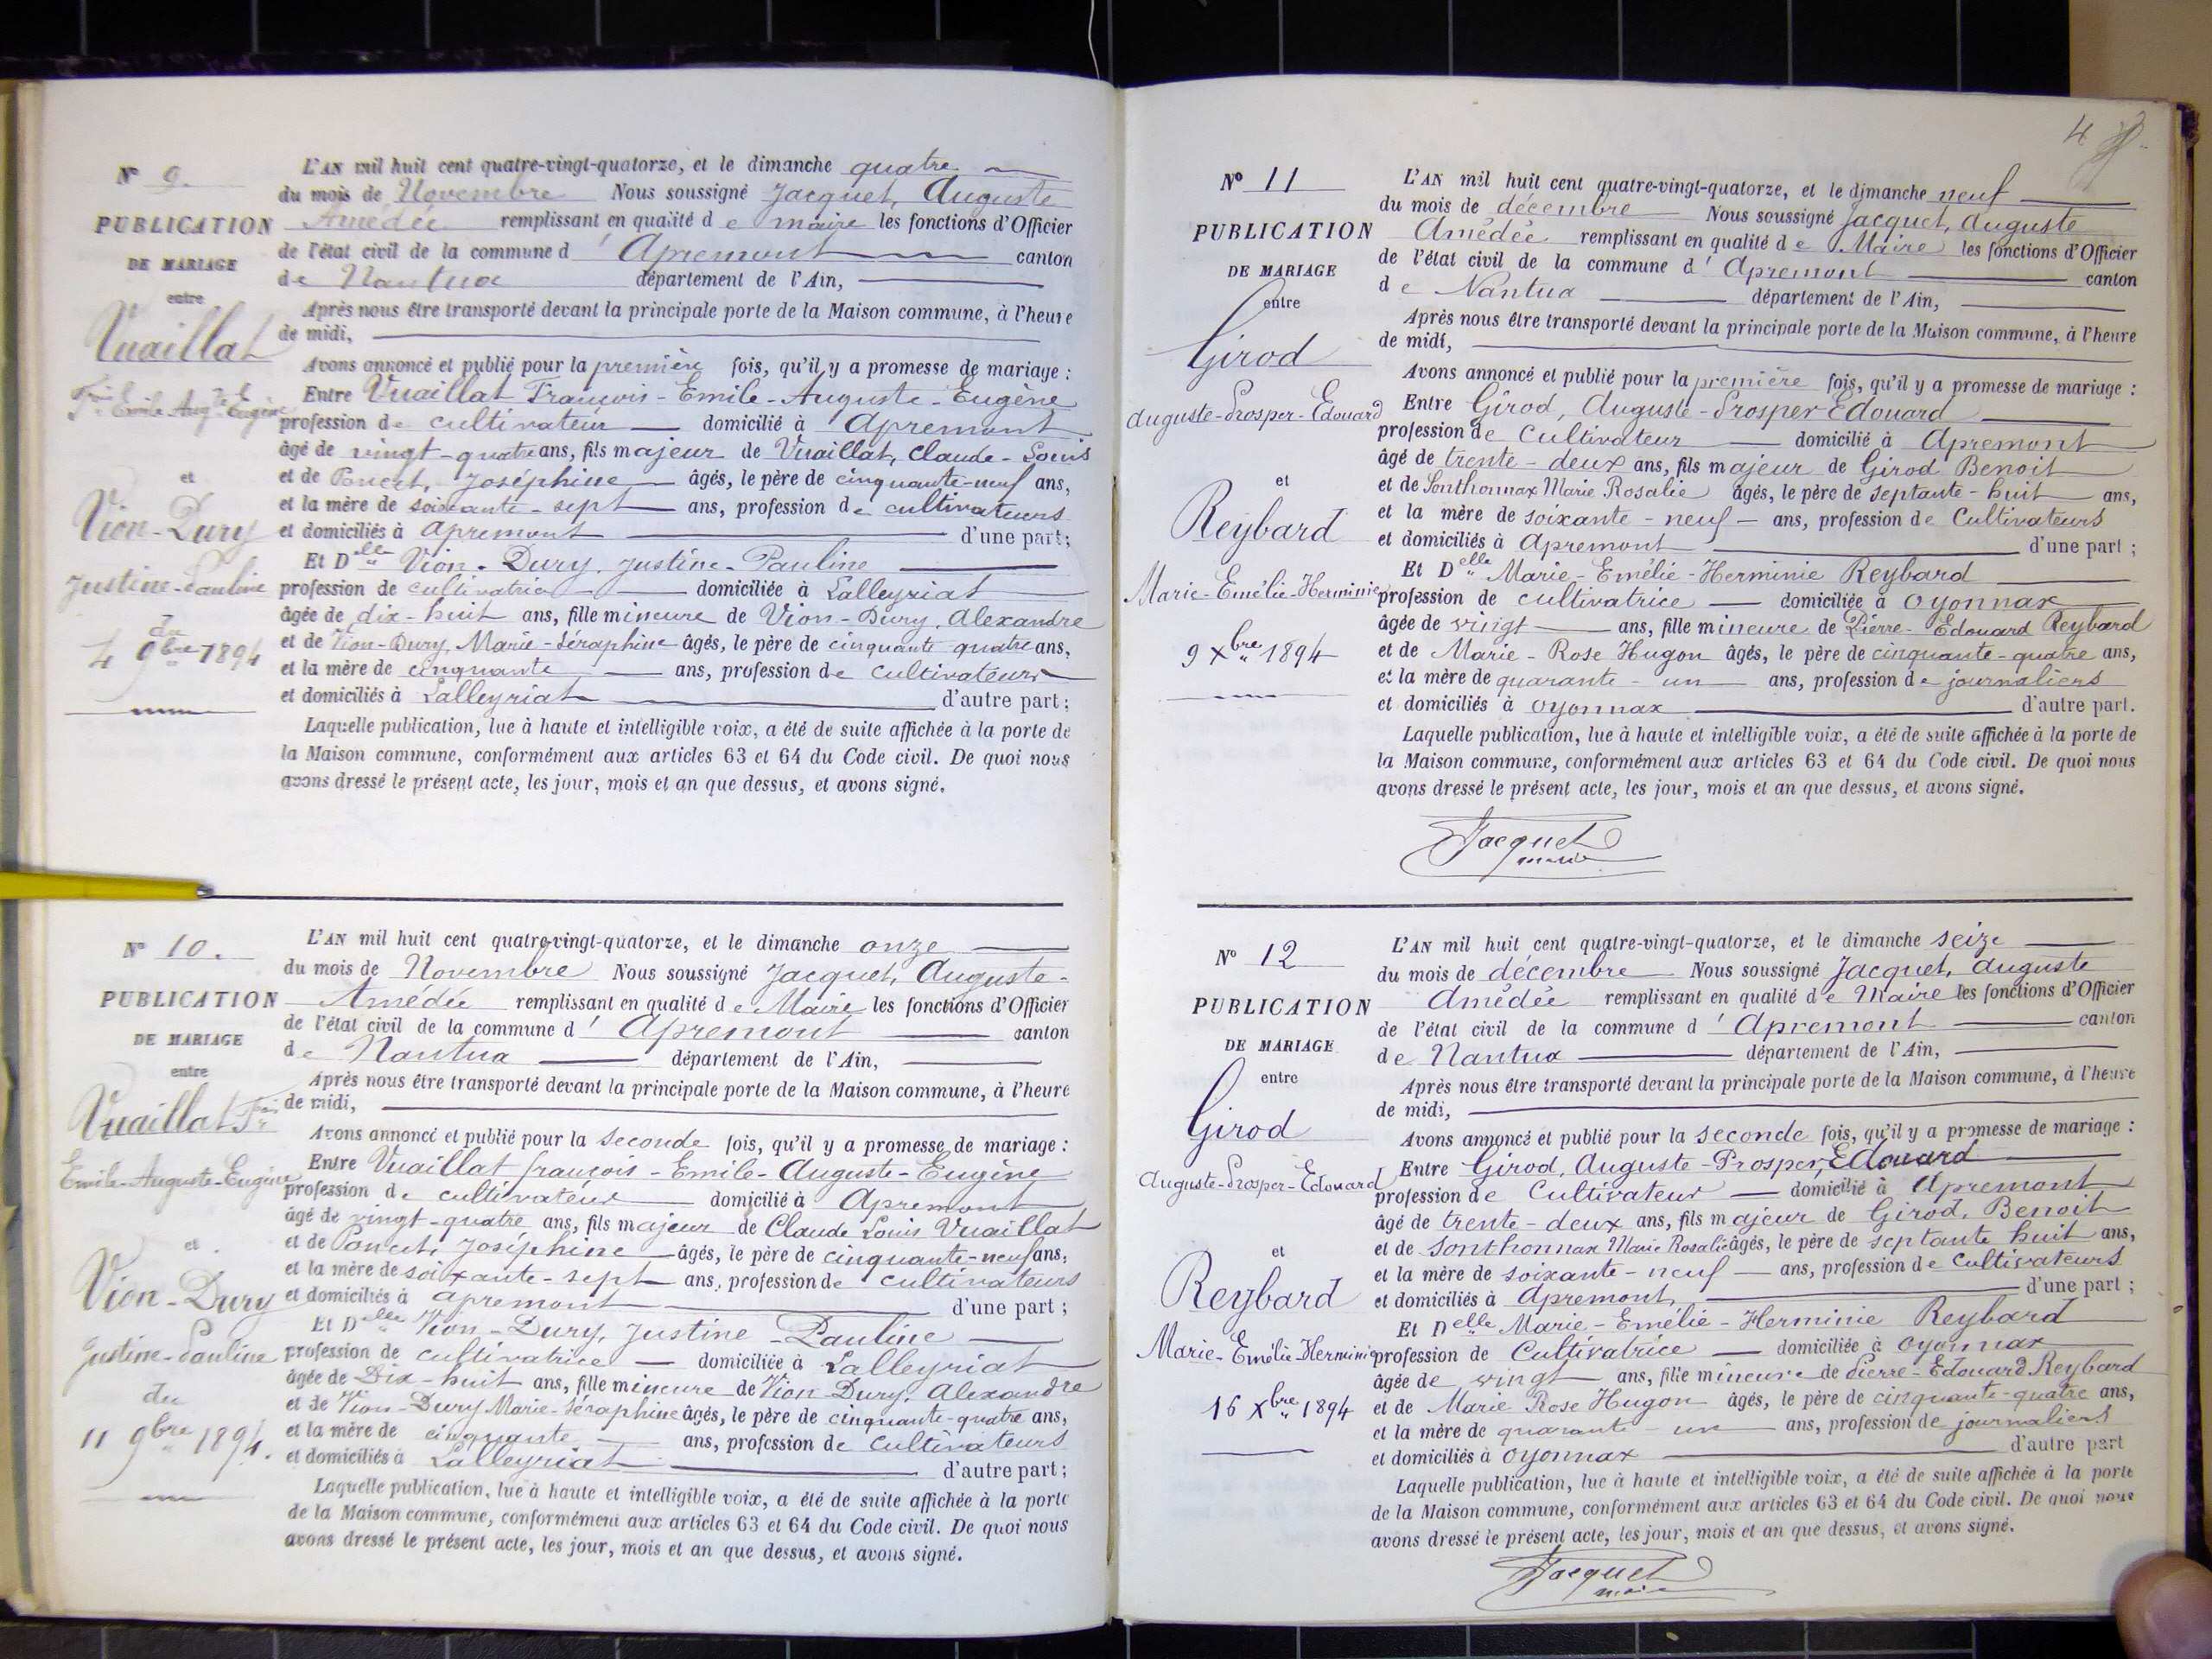 Nº 9.
PUBLICATION
DE MARIAGE
entre
Vuaillat
Fois Emile Aug. Eugène
et
Vion-Dury
Justine-Pauline
du
4 9bre 1894
L'AN mil huit cent quatre-vingt-quatorze, et le dimanche quatre
du mois de Novembre Nous soussigné Jacquet, Auguste
Amédée remplissant en qualité de maire les fonctions d'Officier
de l'état civil de la commune d'Apremont canton
de Nantua département de l'Ain,
Après nous être transporté devant la principale porte de la Maison commune, à l'heure
de midi,
Avons annoncé et publié pour la première fois, qu'il y a promesse de mariage :
Entre Vuaillat François-Emile-Auguste-Eugène
profession de cultivateur domicilié à Apremont
âgé de vingt-quatre ans, fils majeur de Vuaillat, Claude-Louis
et de Poncet, Joséphine âgés, le père de cinquante-neuf ans,
et la mère de soixante-sept ans, profession de cultivateurs
et domiciliés à Apremont d'une part;
Et Delle Vion-Dury, Justine-Pauline
profession de cultivatrice domiciliée à Lalleyriat
âgée de dix-huit ans, fille mineure de Vion-Dury, Alexandre
et de Vion-Dury, Marie-Séraphine âgés, le père de cinquante quatre ans,
et la mère de cinquante ans, profession de cultivateurs
et domiciliés à Lalleyriat d'autre part;
Laquelle publication, lue à haute et intelligible voix, a été de suite affichée à la porte de
la Maison commune, conformément aux articles 63 et 64 du Code civil. De quoi nous
avons dressé le présent acte, les jour, mois et an que dessus, et avons signé.
Nº 10.
PUBLICATION
DE MARIAGE
entre
Vuaillat Fois
Emile-Auguste-Eugène
et
Vion-Dury
Justine-Pauline
du
11 9bre 1894.
L'AN mil huit cent quatre-vingt-quatorze, et le dimanche onze
du mois de Novembre Nous soussigné Jacquet, Auguste-
Amédée remplissant en qualité de Maire les fonctions d'Officier
de l'état civil de la commune d'Apremont canton
de Nantua département de l'Ain,
Après nous être transporté devant la principale porte de la Maison commune, à l'heure
de midi,
Avons annoncé et publié pour la seconde fois, qu'il y a promesse de mariage :
Entre Vuaillat françois-Emile-Auguste-Eugène
profession de cultivateur domicilié à Apremont
âgé de vingt-quatre ans, fils majeur de Claude Louis Vuaillat
et de Poncet, Joséphine âgés, le père de cinquante-neuf ans,
et la mère de soixante-sept ans, profession de cultivateurs
et domiciliés à apremont d'une part ;
Et Delle Vion-Dury, Justine-Pauline
profession de cultivatrice domiciliée à Lalleyriat
âgée de Dix-huit ans, fille mineure de Vion-Dury, Alexandre
et de Vion-Dury Marie-Séraphine âgés, le père de cinquante-quatre ans,
et la mère de cinquante ans, profession de cultivateurs
et domiciliés à Lalleyriat d'autre part;
Laquelle publication, lue à haute et intelligible voix, a été de suite affichée à la porte
de la Maison commune, conformément aux articles 63 et 64 du Code civil. De quoi nous
avons dressé le présent acte, les jour, mois et an que dessus, et avons signé.
4
Nº 11
PUBLICATION
DE MARIAGE
entre
Girod
Auguste-Prosper-Edouard
et
Reybard
Marie-Emélie-Herminie
9 Xbre 1894
L'AN mil huit cent quatre-vingt-quatorze, et le dimanche neuf
du mois de décembre Nous soussigné Jacquet, Auguste
Amédée remplissant en qualité de Maire les fonctions d'Officier
de l'état civil de la commune d'Apremont canton
de Nantua département de l'Ain,
Après nous être transporté devant la principale porte de la Maison commune, à l'heure
de midi,
Avons annoncé et publié pour la première fois, qu'il y a promesse de mariage :
Entre Girod, Auguste-Prosper Edouard
profession de Cultivateur domicilié à Apremont
âgé de trente-deux ans, fils majeur de Girod Benoit
et de Sonthonnax Marie Rosalie âgés, le père de septante-huit ans,
et la mère de soixante-neuf ans, profession de Cultivateurs
et domiciliés à Apremont d'une part ;
Et Delle Marie-Emélie-Herminie Reybard
profession de cultivatrice domiciliée à Oyonnax
âgée de vingt ans, fille mineure de Pierre-Edouard Reybard
et de Marie-Rose Hugon âgés, le père de cinquante-quatre ans,
et la mère de quarante-un ans, profession de journaliers
et domiciliés à Oyonnax d'autre part.
Laquelle publication, lue à haute et intelligible voix, a été de suite affichée à la porte de
la Maison commune, conformément aux articles 63 et 64 du Code civil. De quoi nous
avons dressé le présent acte, les jour, mois et an que dessus, et avons signé.
Jacquet
maire
Nº 12
PUBLICATION
DE MARIAGE
entre
Girod
Auguste-Prosper-Edouard
et
Reybard
Marie-Emélie-Herminie
16 Xbre 1894
L'AN mil huit cent quatre-vingt-quatorze, et le dimanche seize
du mois de décembre Nous soussigné Jacquet, Auguste
Amédée remplissant en qualité de Maire les fonctions d'Officier
de l'état civil de la commune d'Apremont canton
de Nantua département de l'Ain,
Après nous être transporté devant la principale porte de la Maison commune, à l'heure
de midi,
Avons annoncé et publié pour la seconde fois, qu'il y a promesse de mariage :
Entre Girod, Auguste-Prosper, Edouard
profession de Cultivateur domicilié à Apremont
âgé de trente-deux ans, fils majeur de Girod, Benoit
et de Sonthonnax Marie Rosalie âgés, le père de septante huit ans,
et la mère de soixante-neuf ans, profession de Cultivateurs
et domiciliés à Apremont, d'une part ;
Et Delle Marie-Emélie-Herminie Reybard
profession de Cultivatrice domiciliée à Oyonnax
âgée de vingt ans, fille mineure de Pierre-Edouard Reybard
et de Marie Rose Hugon âgés, le père de cinquante-quatre ans,
et la mère de quarante-un ans, profession de journaliers
et domiciliés à Oyonnax d'autre part
Laquelle publication, lue à haute et intelligible voix, a été de suite affichée à la porte
de la Maison commune, conformément aux articles 63 et 64 du Code civil. De quoi nous
avons dressé le présent acte, les jour, mois et an que dessus, et avons signé.
Jacquet
maire